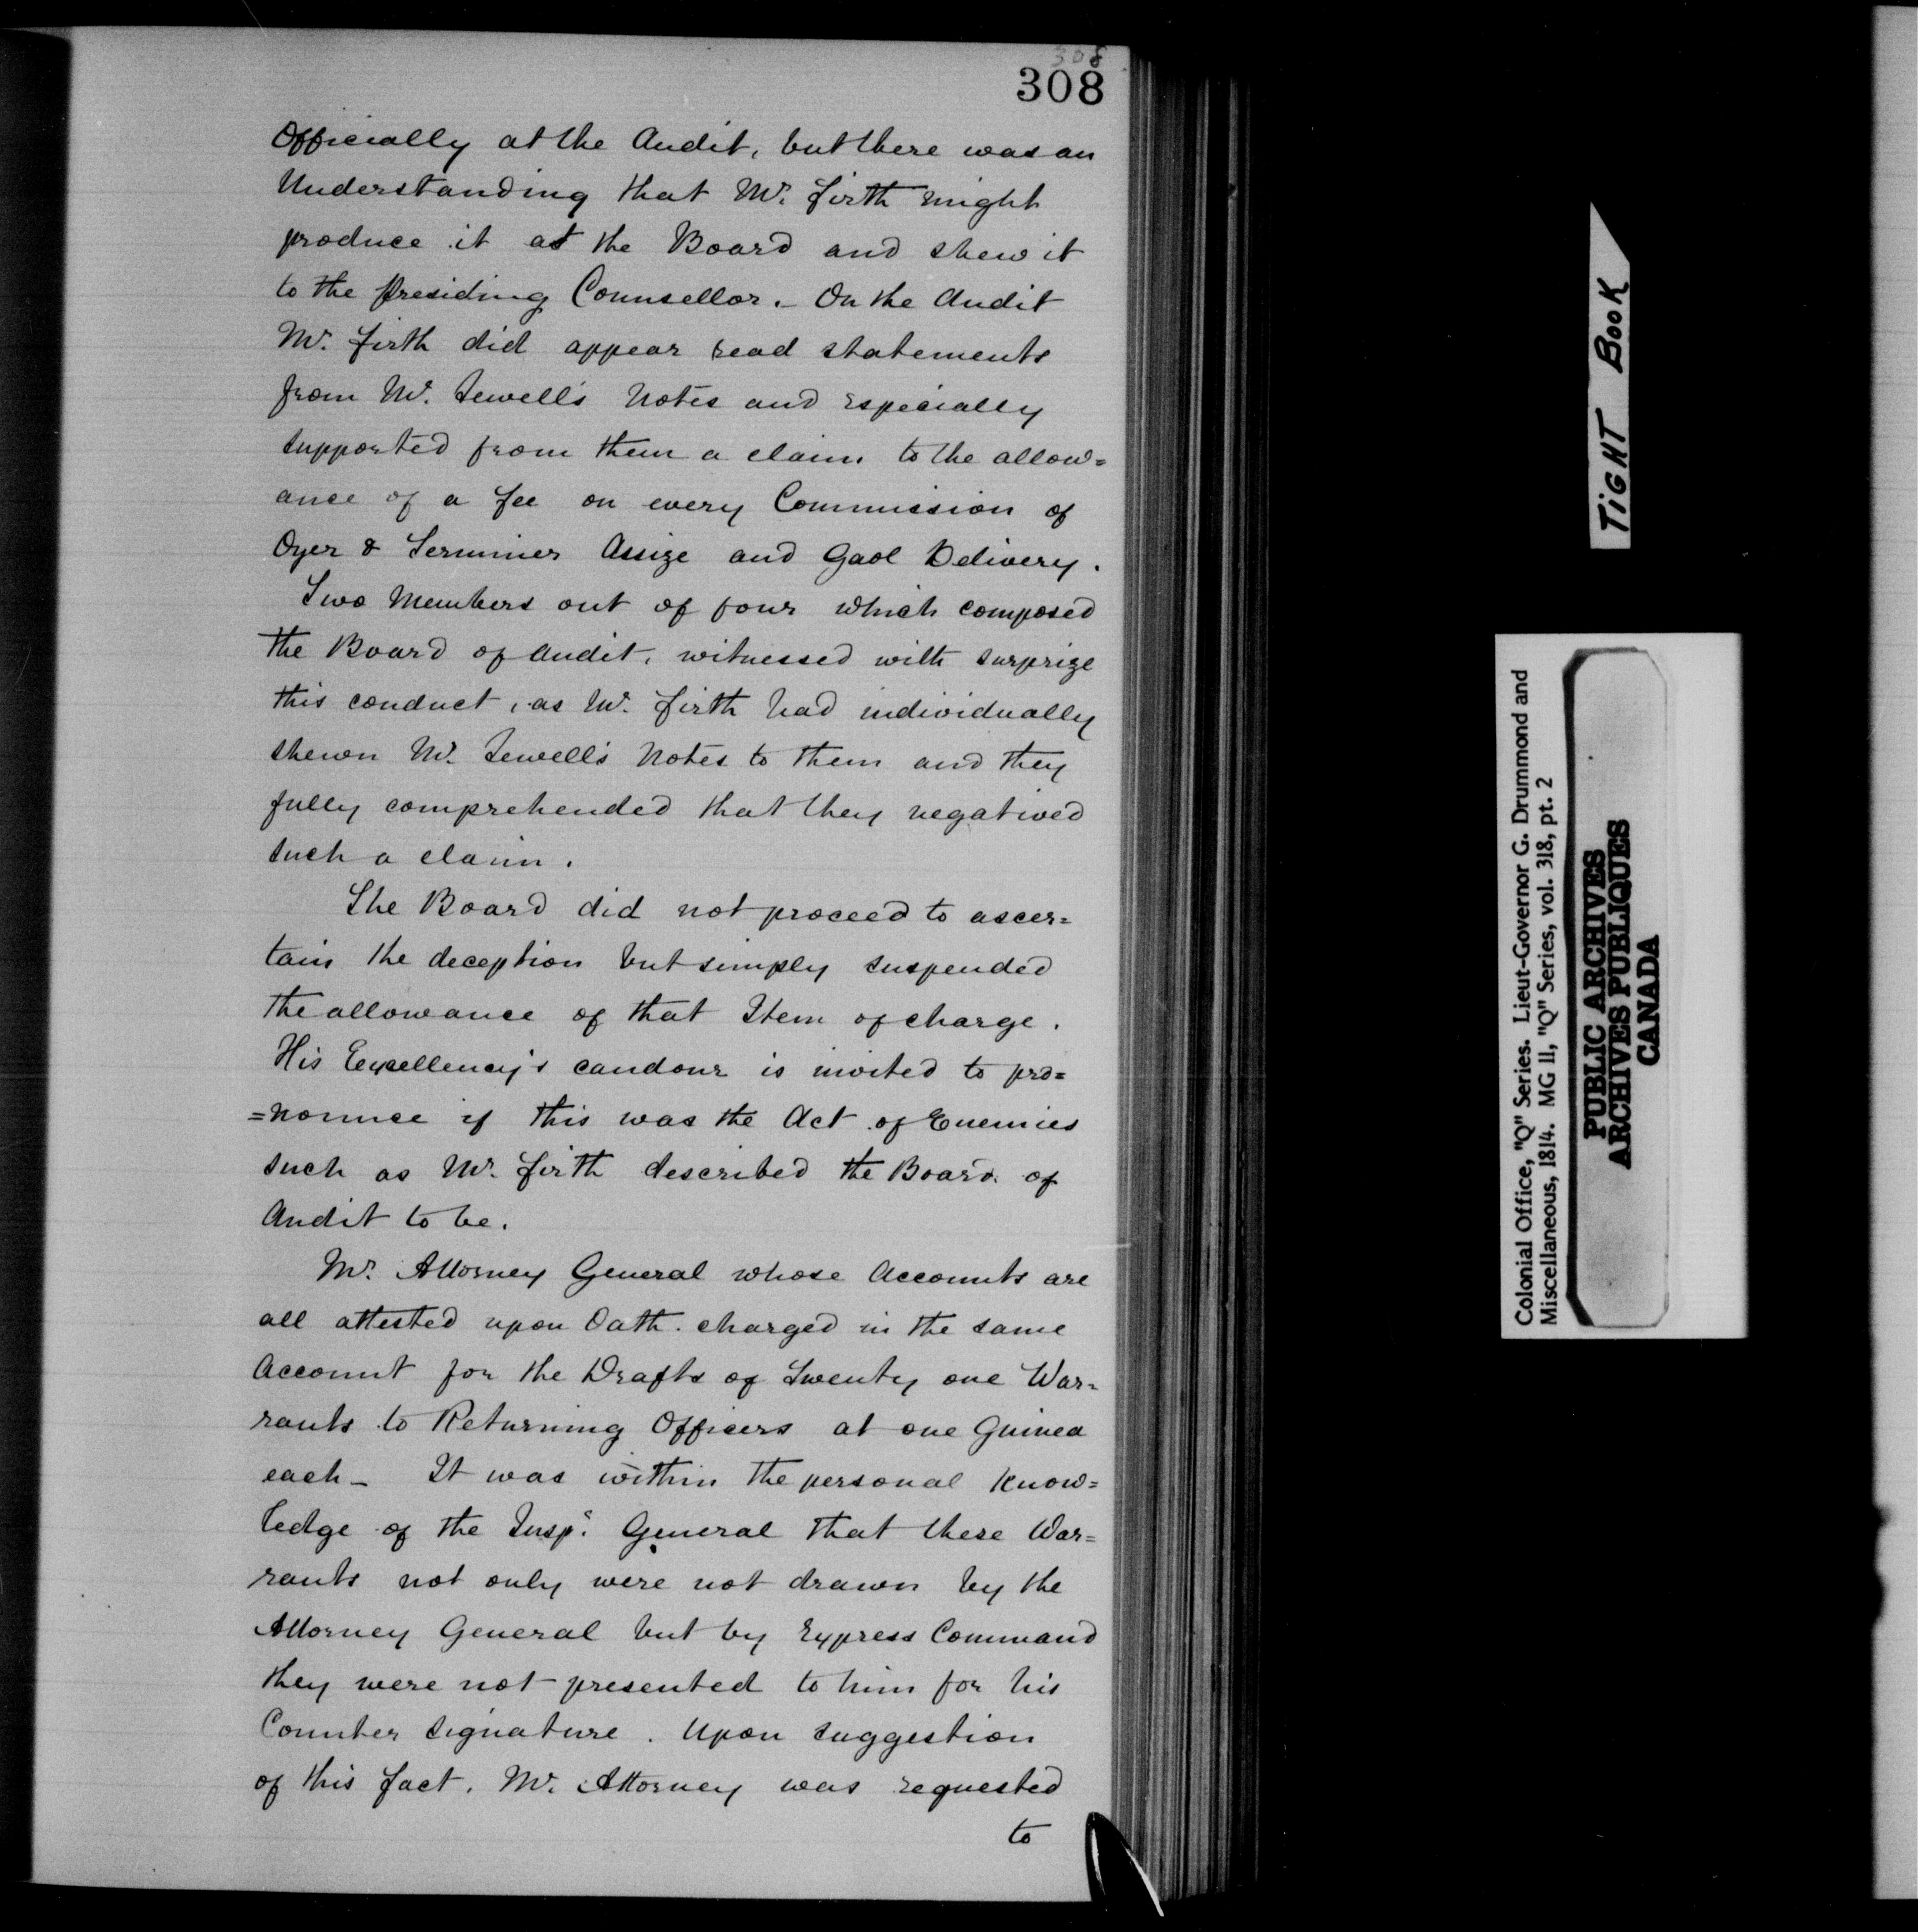 308
308
Officially at the Audit, but there was an
Understanding that Mr. Firth might
produce it at the Board and shew it
to the presiding Counsellor. - On the Audit
Mr. Firth did appear read statements
from Mr. Sewell's Notes and Especially
supported from them a claim to the allow=
ance of a Fee on every Commission of
Oyer & Terminer Assize and Gaol Delivery.
Two Members out of four which composed
the Board of Audit, witnessed with surprize
this conduct, as Mr. Firth had individually
shewn Mr. Sewell's Notes to them and they
fully comprehended that they negatived
such a claim.
The Board did not proceed to ascer=
tain the deception but simply suspended
the allowance of that Item of charge.
His Excellency's candour is invited to pro=
=nounce if this was the Act of Enemies
such as Mr. Firth described the Board of
Audit to be.
Mr. Attorney General whose Accounts are
all attested upon Oath. charged in the same
Account for the Drafts of Twenty one War=
rants to Returning Officers at one Guinea
each - It was within the personal Know=
ledge of the Inspr. General that these War=
rants not only were not drawn by the
Attorney General but by Express Command
they were not presented to him for his
Counter Signature. Upon suggestion
of this fact. Mr. Attorney was requested
to
TIGHT BOOK
Colonial Office, "Q" Series. Lieut-Governor G. Drummond and
Miscellaneous, 1814. MG 11, "Q" Series, vol. 318, pt. 2
PUBLIC ARCHIVES
ARCHIVES PUBLIQUES
CANADA